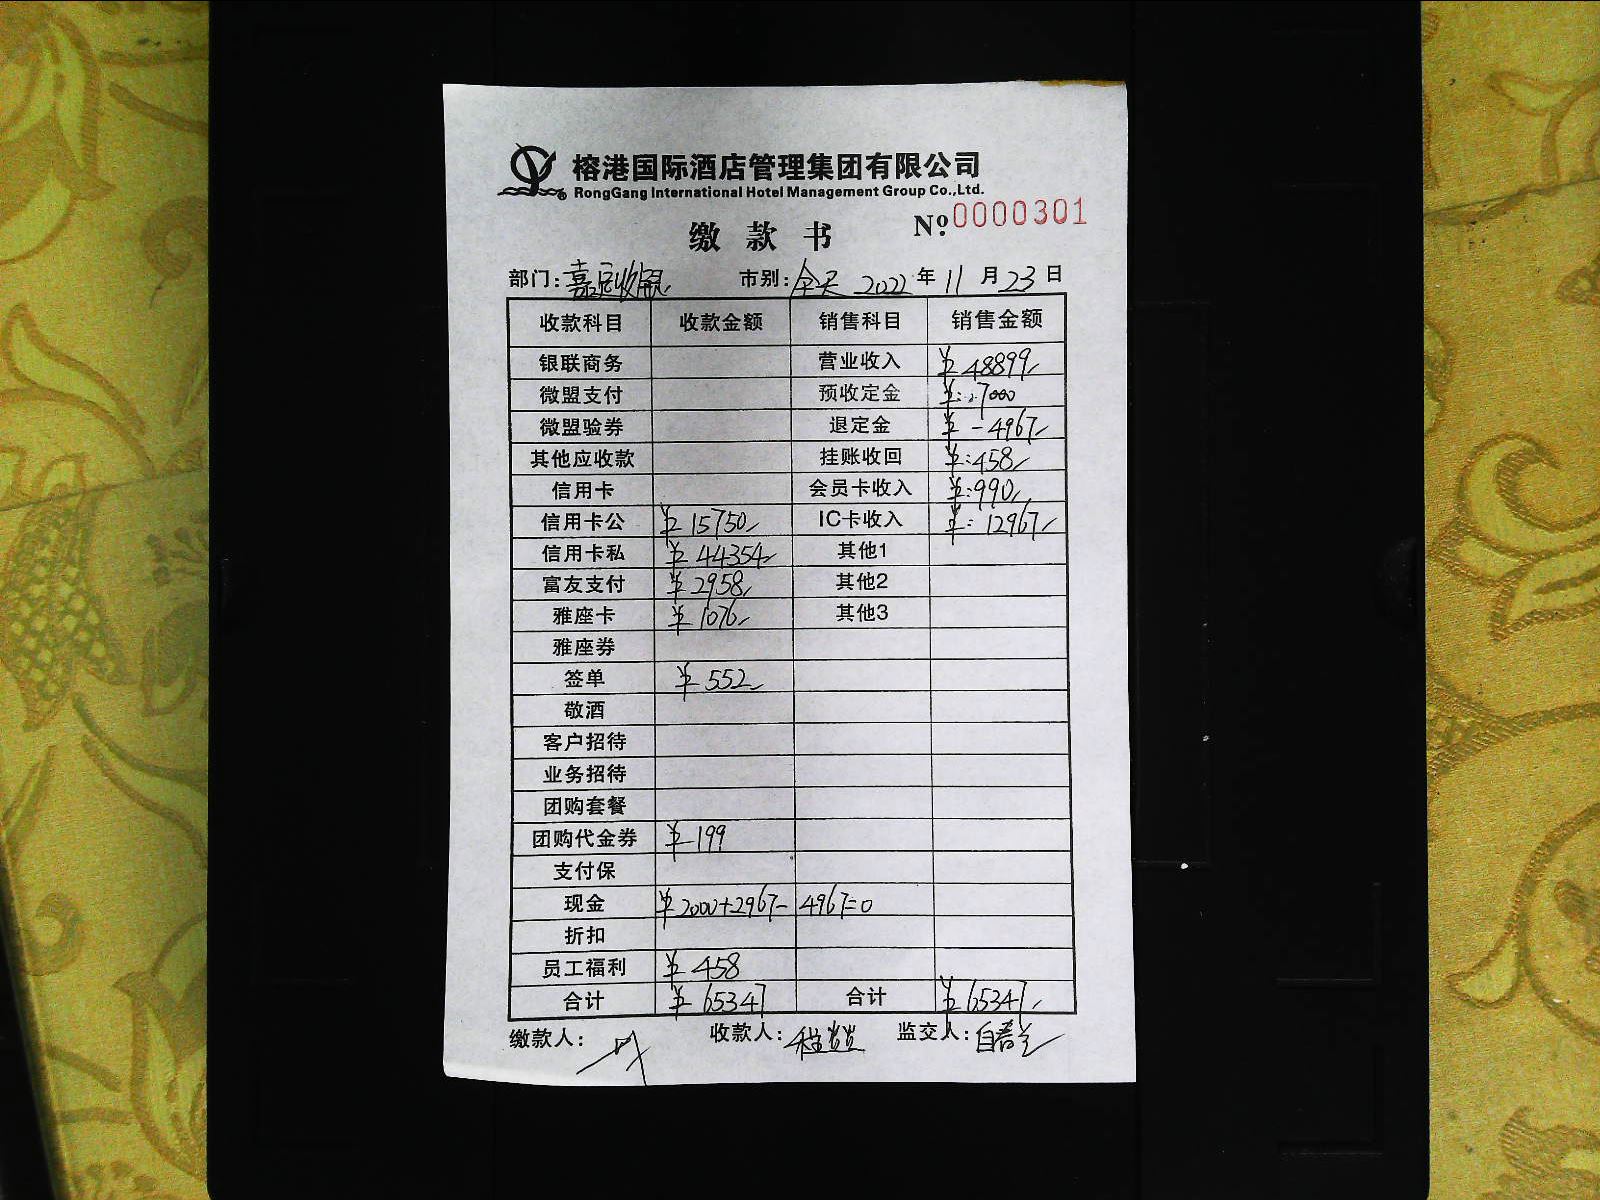 榕港国际酒店管理集团有限公司
RongGang International Hotel Management Group Co.,Ltd.
缴款书 Nº 0000301
部门:嘉定收银 市别:全天 2022年11月23日
收款科目 收款金额 销售科目 销售金额
银联商务 营业收入 ¥48899
微盟支付 预收定金 ¥:7000
微盟验券 退定金 ¥-4967
其他应收款 挂账收回 ¥:458
信用卡 会员卡收入 ¥:990
信用卡公 ¥15750 IC卡收入 ¥:12967
信用卡私 ¥44354 其他1
富友支付 ¥2958 其他2
雅座卡 ¥1076 其他3
雅座券
签单 ¥552
敬酒
客户招待
业务招待
团购套餐
团购代金券 ¥199
支付保
现金 ¥2000+2967-4967=0
折扣
员工福利 ¥458
合计 ¥65347 合计 ¥65347
缴款人: 收款人: 监交人: